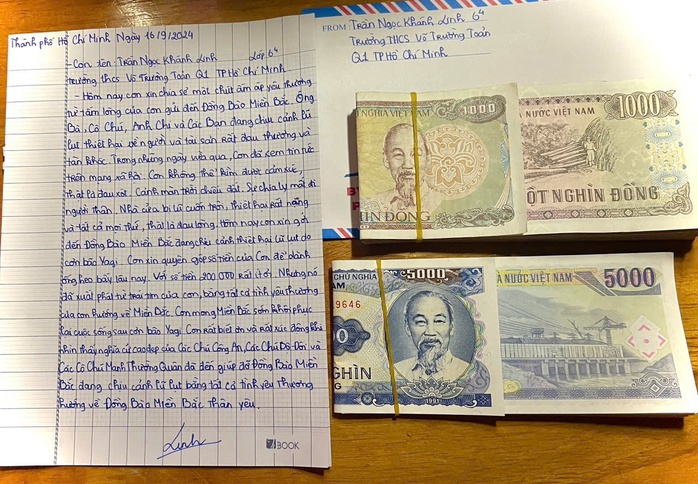 Thành phố Hồ Chí Minh Ngày 16/9/2024
- Con tên: Trần Ngọc Khánh Linh Lớp 6⁴
Trường thcs Võ Trường Toản Q1 TP Hồ Chí Minh
- Hôm nay con xin chia sẻ một chút ấm áp yêu thương
từ tấm lòng của con gửi đến Đồng Bào Miền Bắc. Ông
Bà, Cô Chú, Anh Chị và Các Bạn đang chịu cảnh lũ
lụt thiệt hại về người và tài sản rất đau thương và
tàn khốc. Trong những ngày vừa qua, Con đã xem tin tức
trên mạng xã hội. Con không thể kìm được cảm xúc,
thật là đau xót. Cảnh màn trời chiếu đất. Sự chia ly mất đi
người thân. Nhà cửa bị lũ cuốn trôi, thiệt hại rất nặng
và tất cả mọi thứ, thật là đau lòng. Hôm nay con xin gởi
đến Đồng Bào Miền Bắc đang chịu cảnh thiệt hại lũ lụt do
cơn bão Yagi. Con xin quyên góp số tiền của Con để dành
ống heo bấy lâu nay. Với số tiền 200.000 rất ít ỏi. Nhưng nó
đã xuất phát từ trái tim của con, bằng tất cả tình yêu thương
của con hướng về Miền Bắc. Con mong Miền Bắc sớm khôi phục
lại cuộc sống sau cơn bão Yagi. Con rất biết ơn và rất xúc động khi
nhìn thấy nghĩa cử cao đẹp của Các Chú Công An, Các Chú Bộ Đội và
Các Cô Chú Mạnh Thường Quân đã đến giúp đỡ Đồng Bào Miền
Bắc đang chịu cảnh lũ lụt bằng tất cả tình yêu thương
hướng về Đồng Bào Miền Bắc thân yêu.
Linh
BOOK
FROM Trần Ngọc Khánh Linh 6⁴
Trường THCS Võ Trường Toản
Q1 TP Hồ Chí Minh
NGHĨA VIỆT NAM 1000
1000
NƯỚC VIỆT NAM
ÌN ĐỒNG
ỘT NGHÌN ĐỒNG
CHỦ NGHĨA
5000
9646
NGHÌN
1991
À NƯỚC VIỆT NAM
5000